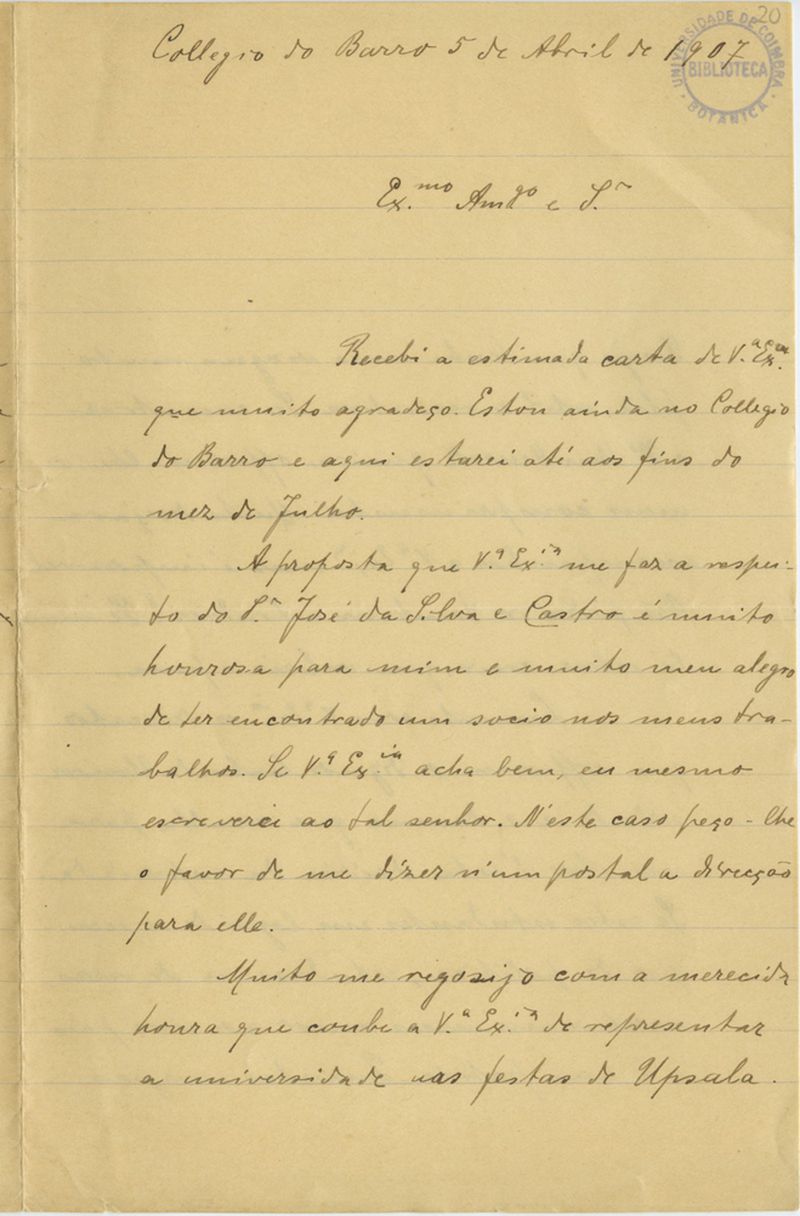 20
UNIVERSIDADE DE COIMBRA
BIBLIOTECA
BOTANICA
Collegio do Barro 5 de Abril de 1907
Ex.mo Amgo e S.r
Recebi a estimada carta de V.a Ex.cia
que muito agradeço. Estou ainda no Collegio
do Barro e aqui estarei até aos fins do
mez de Julho.
A proposta que V.a Ex.ia me faz a respei-
to do S.r José da Silva e Castro é muito
honrosa para mim e muito meu alegro
de ter encontrado um socio nos meus tra-
balhos. Se V.a Ex.ia acha bem, eu mesmo
escreverei ao tal senhor. N'este caso peço-lhe
o favor de me dizer n'um postal a direcção
para elle.
Muito me regosijo com a merecida
honra que coube a V.a Ex.ia de representar
a universidade nas festas de Upsala.